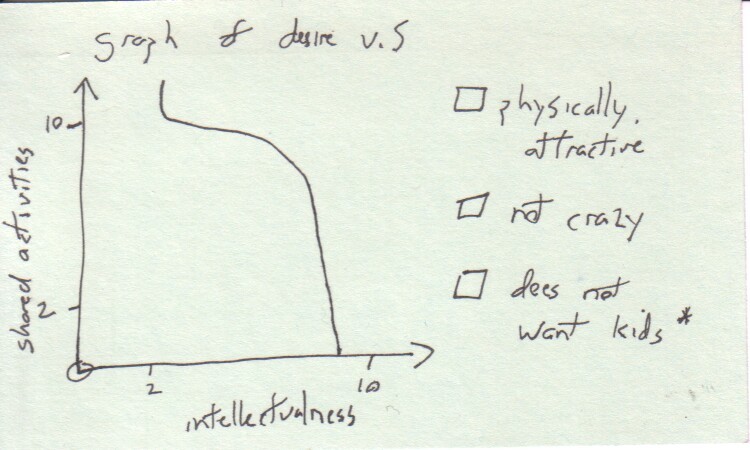 graph of desire v.5
10
shared activities
2
2
10
intellectualness
physically.
attractive
not crazy
does not
want kids*